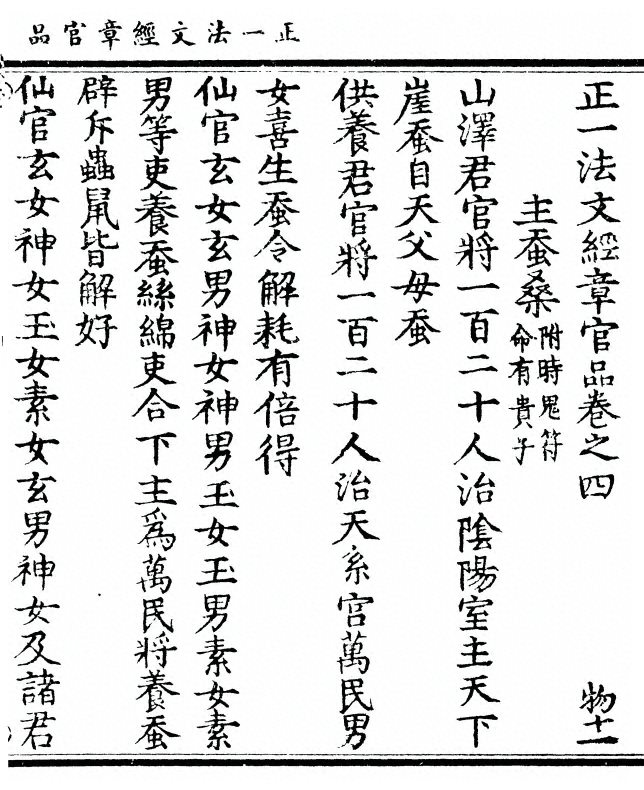 正一法文經章官品
正一法文經章官品卷之四　物十一
主蚕桑附時鬼符
命有貴子
山澤君官將一百二十人治陰陽室主天下
崖蚕自天父母蚕
供養君官將一百二十人治天系宮萬民男
女喜生蚕令解耗有倍得
仙官玄女玄男神女神男玉女玉男素女素
男等吏養蚕絲綿吏合下主為萬民將養蚕
辟斥蟲鼠皆解好
仙官玄女神女玉女素女玄男神女及諸君